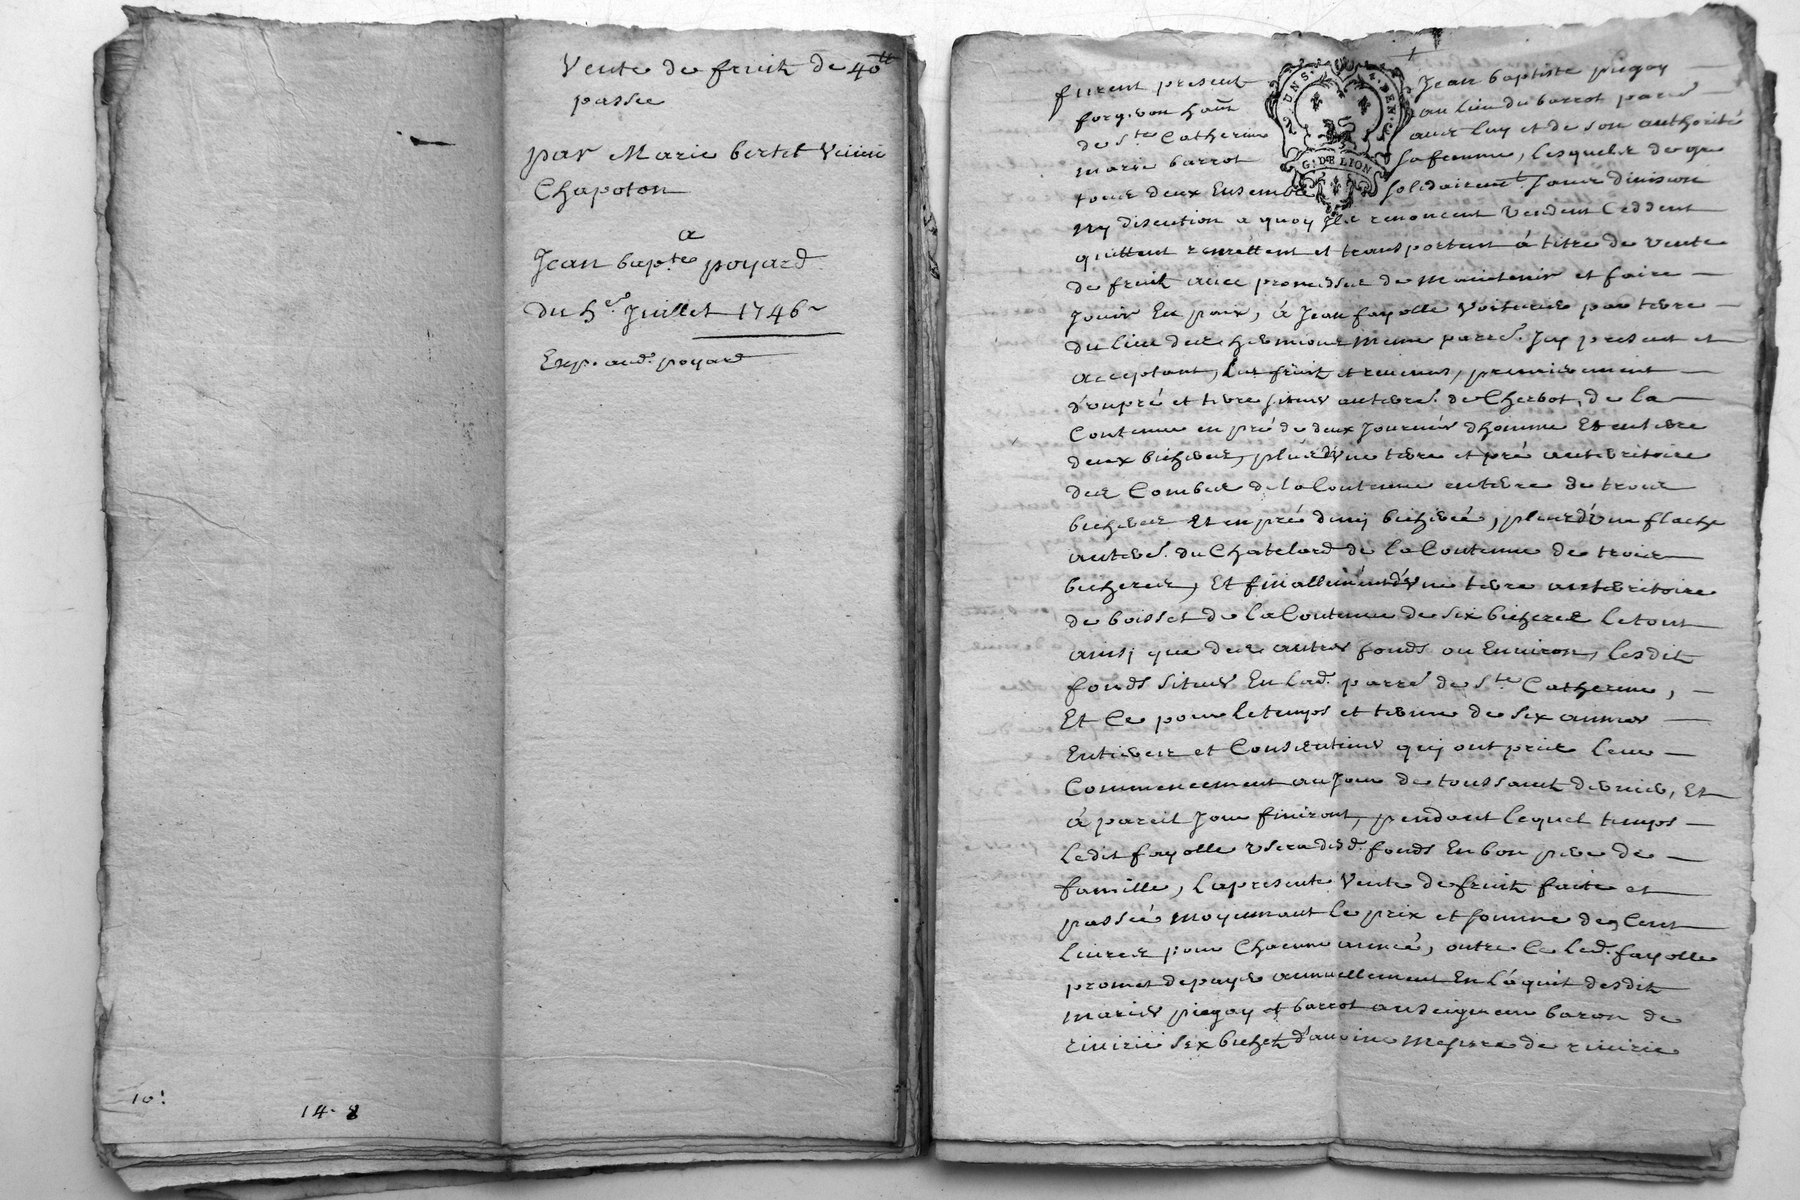 Vente de fruit de 40tt
passee
par Marie bertet veuve
Chapoton
a
Jean bapte poyard
du 5e Juillet 1746
Exp. aud. poyard
10:
14-8
furent present Jean baptiste piegay
forgeron hant au lieu du barrot parre
de Ste Catherine avec luy et de son authorité
marie barrot sa femme, lesquels de gre
tous deux Ensemble solidairemt. sans division
ny discution a quoy Ils renoncent vendent Ceddent
quittent remettent et transportent à titre de vente
de fruit avec promesse de maintenir et faire
Jouir En paix, à Jean fayolle voiturier par terre
du lieu des hermioux meme parre. Icy present et
acceptant, les fruit et revenus, premierement
d'un pré et terre situés au terre. de Cherbot, de la
Contenue en pré de deux Journées dhomme Et en terre
deux bicherés, plus d'une terre et pré au territoire
des Combes de la Contenue en terre de trois
bicherés Et en pré demy bicherée, plus d'une flache
au terre. du Chatelard de la Contenue de trois
bicherés, Et finallement d'une terre au territoire
de boisset de la Contenue de six bicherés le tout
ainsi que des autres fonds ou Environ, lesdit
fonds situés En lad. parre de Ste Catherine,
Et Ce pour le temps et terme de six années
Entieres et Consecutives qui ont pris leur
Commencement au Jour de toussaint dernier, Et
à pareil Jour finiront, pendant lequel temps
ledit fayolle usera desd. fonds En bon pere de
famille, la presente vente de fruit faite et
passée moyennant le prix et somme de Cent
livres pour Chacune année, outre Ce led. fayolle
promet de payer annuellement En l'aquit desdit
mariés piegay et barrot au seigneur baron de
riviriè six bichet d'avoine mesure de riviriè
G. DE LION